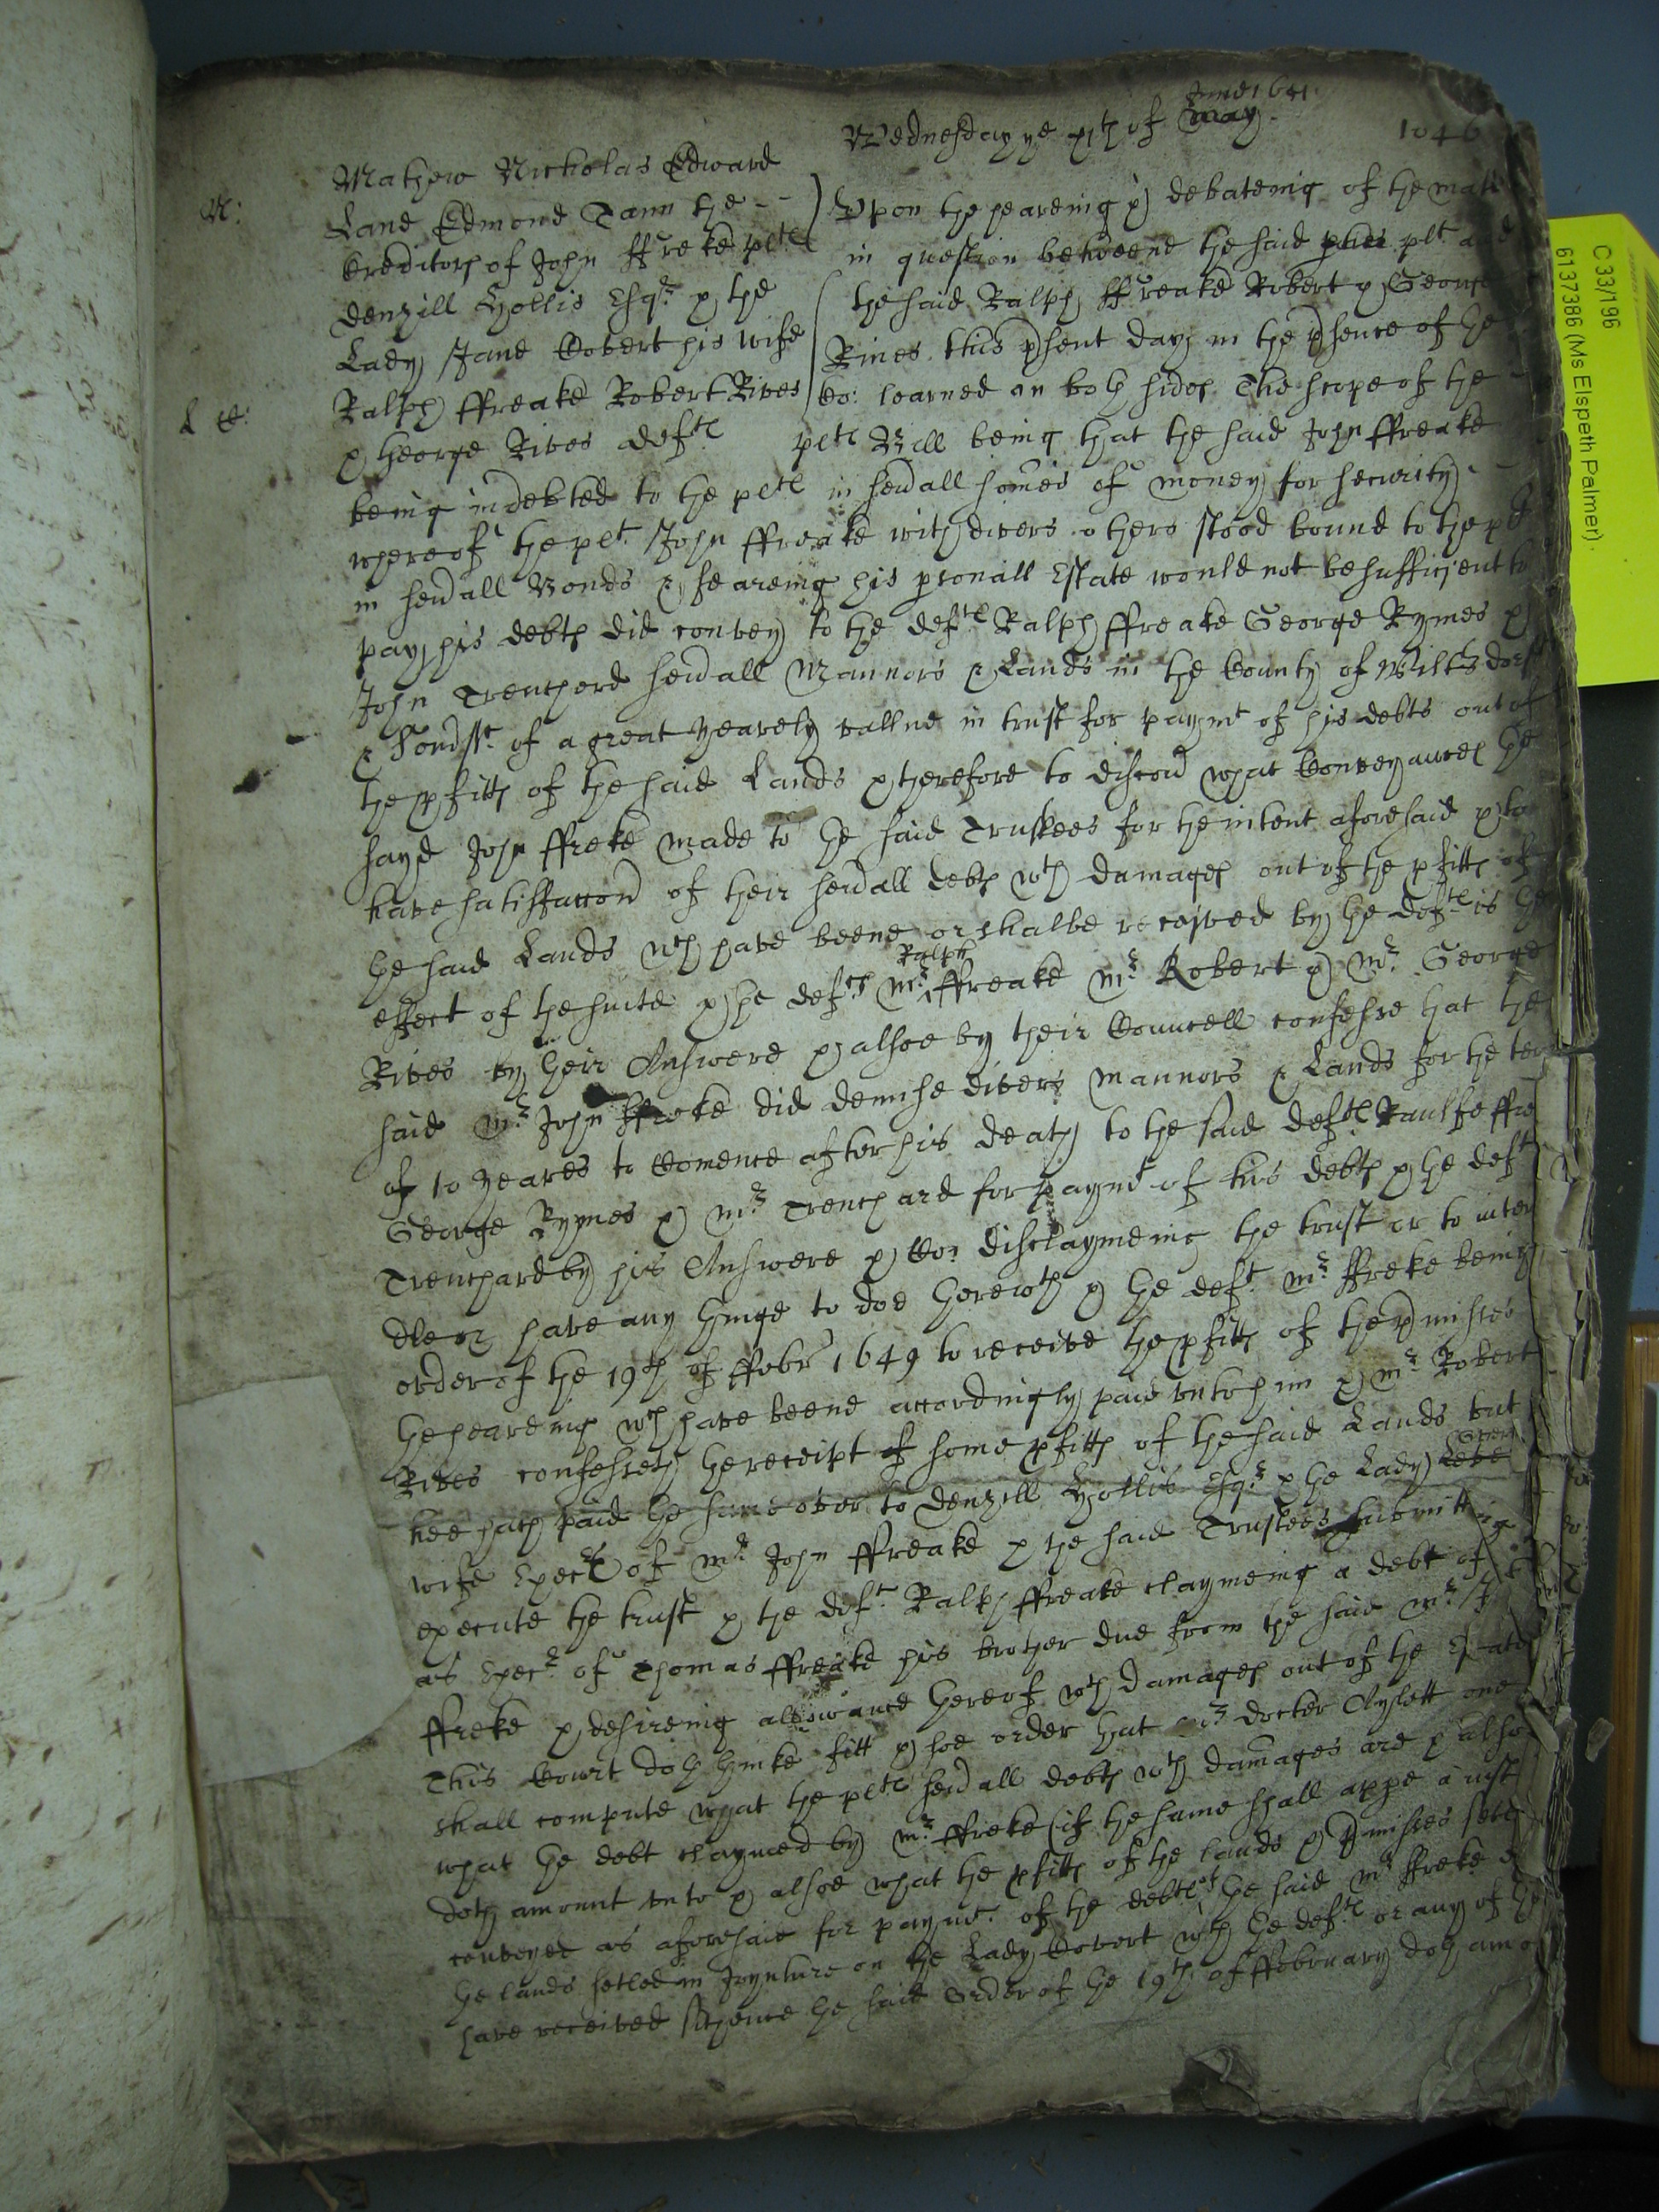 June 1651
Wednesday ye xjth of may
1046
N:
L C:
Mathew Nicholas Edward
Lane Edmond Tann the --
Creditors of John ffreke plts
Denzill Hollis Esqr & the
Lady Jane Covert his wife
Ralph ffreake Robert Rives
& George Rives defts
Upon the heareing & debateing of the mat
in question betweene the said plt and
the said Ralph ffreake Robert & George
Rives this psent day in the psence of the
Co: learned on both sides The scope of the
plts Bill being that the said John ffreake
being indebted to the plts in severall somes of money for security
whereof the plt John ffreake with divers others stood bound to the
in severall Bonds & feareing his psonall Estate would not be sufficient to
pay his debts did convey to the defts Ralph ffreake George Rymes &
John Trenchard severall Mannors & Lands in the County of Wilts
& Somsst of a great yearely vallue in trust for paymt of his debts out of
the pfitts of the said Lands & therefore to discov what Conveyances the
sayd John ffreke made to the said Trustees for the intent aforesaid & to
have satisfaccon of their severall debts wth damages out of the pfitts of
the said Lands wch have beene or shalbe received by the defts is the
effect of the suite & the defts Mr Ralph ffreake Mr Robert & Mr George
Rives by their Answere & alsoe by their Councell confesse that the
said Mr John ffreke did demise divers Mannors & Lands for the
of 10 yeares to Comence after his death to the said defts Raulfe
George Rymes & Mr Trenchard for paymt of his debts & the deft
Trenchard by his Answere & Co: disclaymeing the trust or to
have any thinge to doe therewth & the deft Mr ffreke being
order of the 19th of ffebr 1649 to receive the pfitts of the pmisses
the heareing wch have beene accordingly paid unto him & Mr Robert
Rives confesseth the receipt of some pfitts of the said Lands but
hee hath paid the same over to Denzill Hollis Esqr & the Lady Covert
wife Execx of Mr John ffreake & the said Trustees submitting
execute the trust & the deft Ralph ffreake claymeing a debt of
as Execr of Thomas ffreake his brother due from the said Mr
ffreke & desireing allowance thereof wth damages out of the Estate
This Court doth thinke fitt & soe order that Mr docter Aylett one
shall compute what the plts severall debts wth damages are & alsoe
what the debt claymed by Mr ffreke (if the same shall appe a just
doth amount unto & alsoe what the pfitts of the lands & pmisses
conveyed as aforesaid for paymt of the debts the said Mr ffreke &
the lands setled in Joynture on the Lady Covert wch the defts or any of
have received sithence the said Order of the 19th of ffebruary doth
C 33/196
6137386 (Ms Elspeth Palmer)